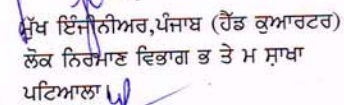 ਮੁੱਖ ਇੰਜੀਨੀਅਰ,ਪੰਜਾਬ (ਹੈੱਡ ਕੁਆਰਟਰ)
ਲੋਕ ਨਿਰਮਾਣ ਵਿਭਾਗ ਭ ਤੇ ਮ ਸ਼ਾਖਾ
ਪਟਿਆਲਾ।